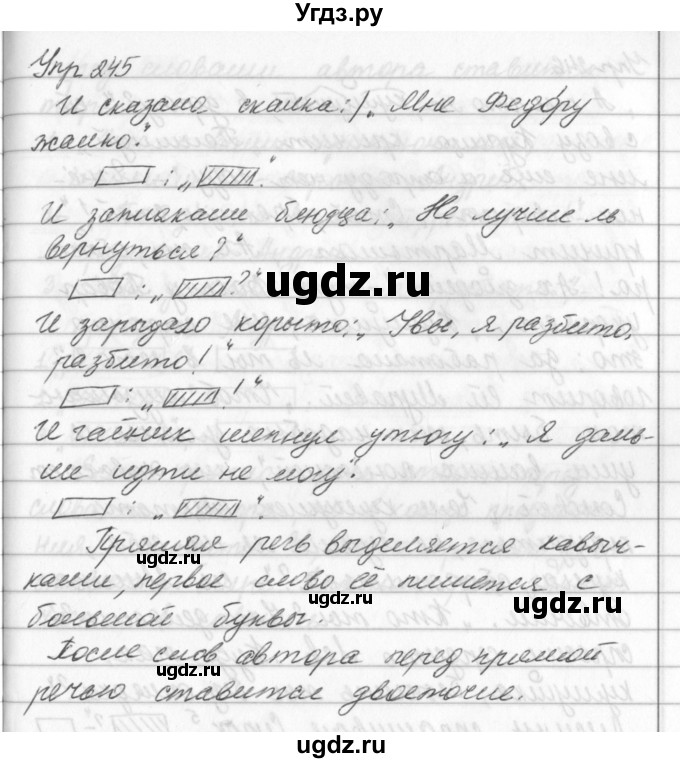 Угдз.ру
Упр 245
И сказала скалка: „Мне Федору
жалко".
: „ ".
И заплакали блюдца: „Не лучше ль
вернуться?"
: „ ?"
ugdz.ru
И зарыдало корыто: „Увы, я разбито,
разбито!"
ugdz.ru
: „ !"
И чайник шепнул утюгу: „Я даль-
ше идти не могу".
: „ ".
Прямая речь выделяется кавыч-
ugdz.ru
ками, первое слово её пишется с
ugdz.ru
ugdz.ru
большой буквы.
После слов автора перед прямой
ugdz.ru
речью ставится двоеточие.
ugdz.ru